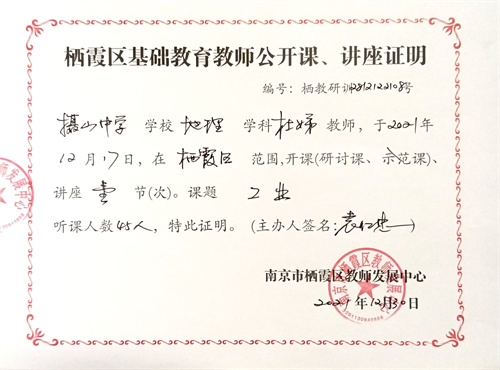 栖霞区基础教育教师公开课、讲座证明
编号：栖教研训212122108号
摄山中学 学校 地理 学科 杜娣 教师，于2021年
12月17日，在 栖霞区 范围，开课(研讨课、示范课)、
讲座 壹 节(次)。课题 工业
听课人数45人，特此证明。(主办人签名: )
南京市栖霞区教师发展中心
2021年12月30日